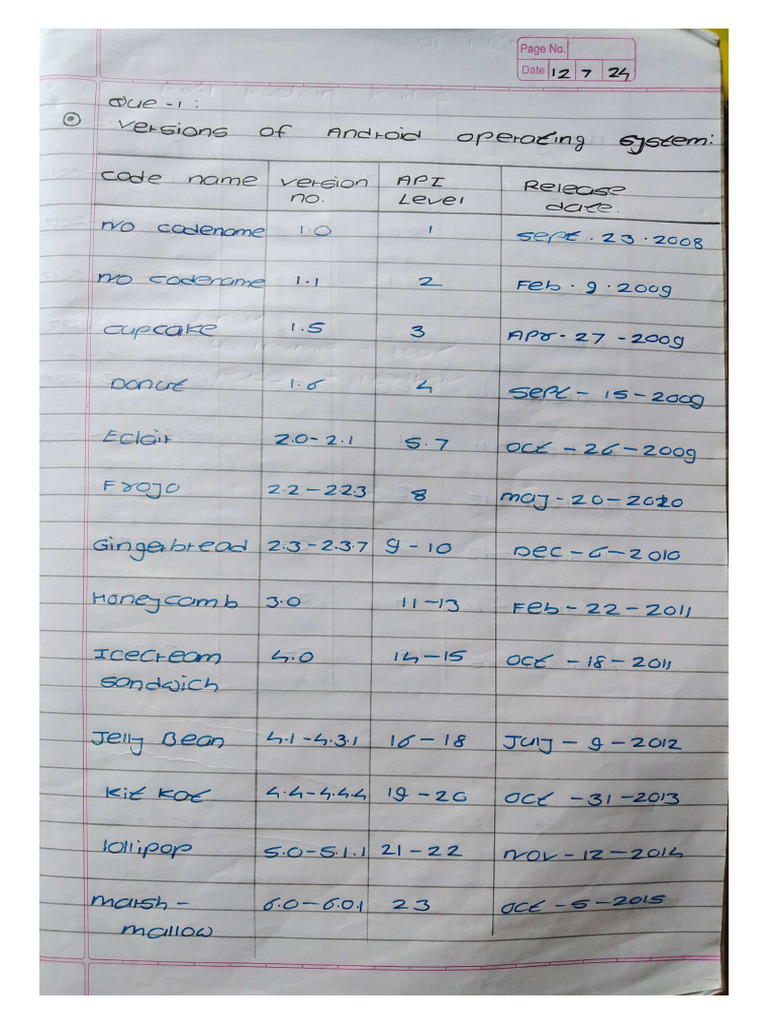 Page No.
Date 12 7 24
Que-1:
versions of Android operating system:
code name version no. API Level Release date.
No codename 1.0 1 Sept. 23. 2008
No codename 1.1 2 Feb. 9. 2009
cupcake 1.5 3 Apr-27-2009
Donut 1.6 4 Sept-15-2009
Eclair 2.0-2.1 5.7 Oct-26-2009
Froyo 2.2-2.2.3 8 may-20-2010
Gingerbread 2.3-2.3.7 9-10 Dec-6-2010
Honeycomb 3.0 11-13 Feb-22-2011
Icecream sandwich 4.0 14-15 Oct-18-2011
Jelly Bean 4.1-4.3.1 16-18 July-9-2012
Kit Kat 4.4-4.4.4 19-20 Oct-31-2013
lollipop 5.0-5.1.1 21-22 Nov-12-2014
marsh-mallow 6.0-6.0.1 23 Oct-5-2015